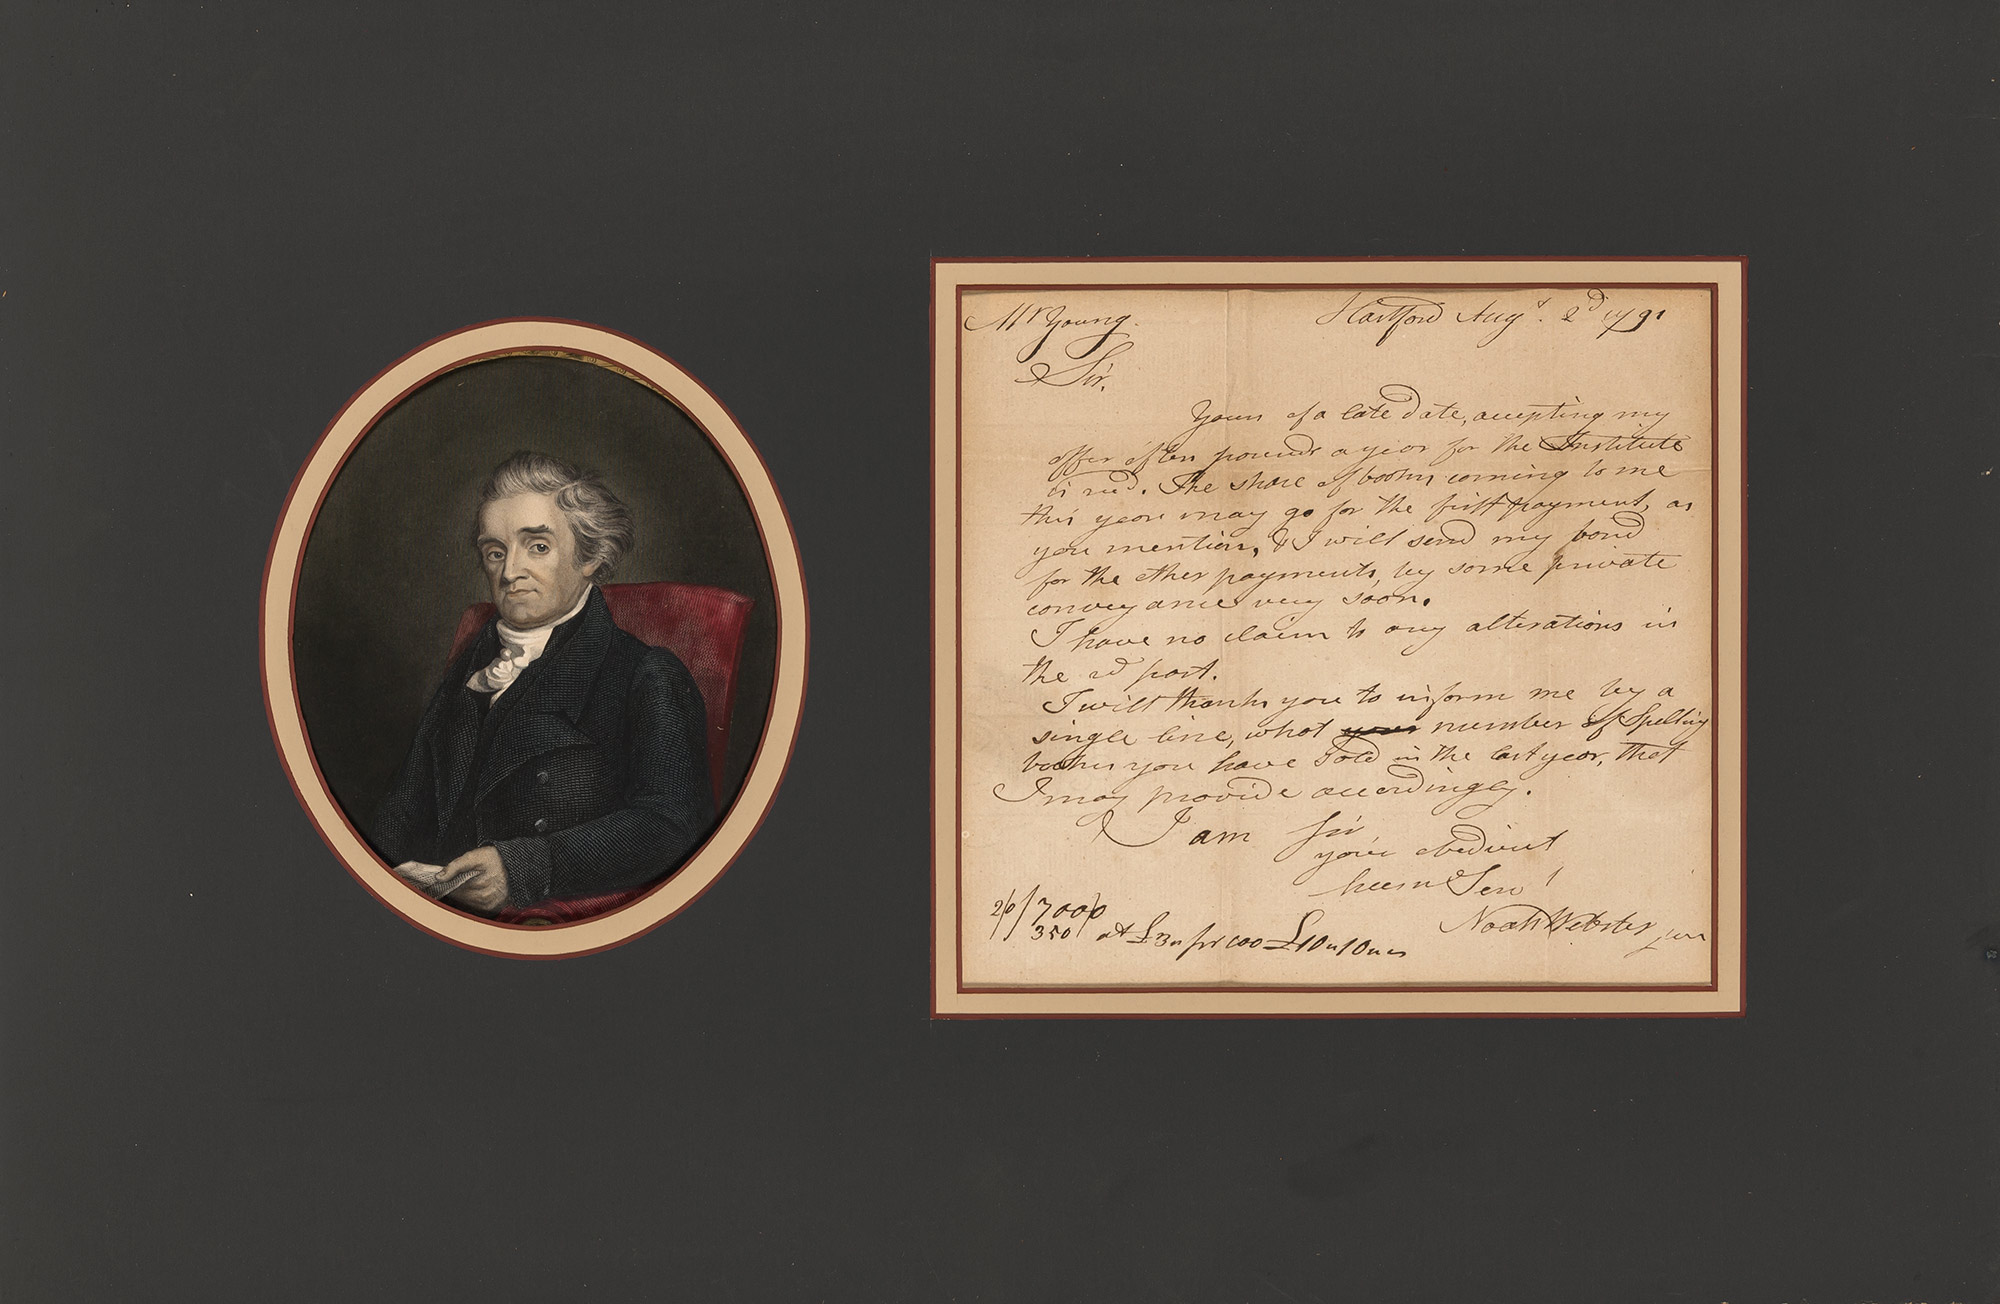 Mr Young. Hartford Augt. 2d 1791
Sir,
Yours of a late date, accepting my
offer of ten pounds a year for the Institute
is recd. The share of books coming to me
this year may go for the first payment, as
you mention, & I will send my bond
for the other payments, by some private
conveyance very soon.
I have no claim to any alterations in
the 2d part.
I will thank you to inform me by a
single line, what your number of Spelling
books you have sold in the last year, that
I may provide accordingly.
I am Sir,
your obedient
hum Servt
Noah Webster jun
20/7000
350 at £3 per 100 £10 10